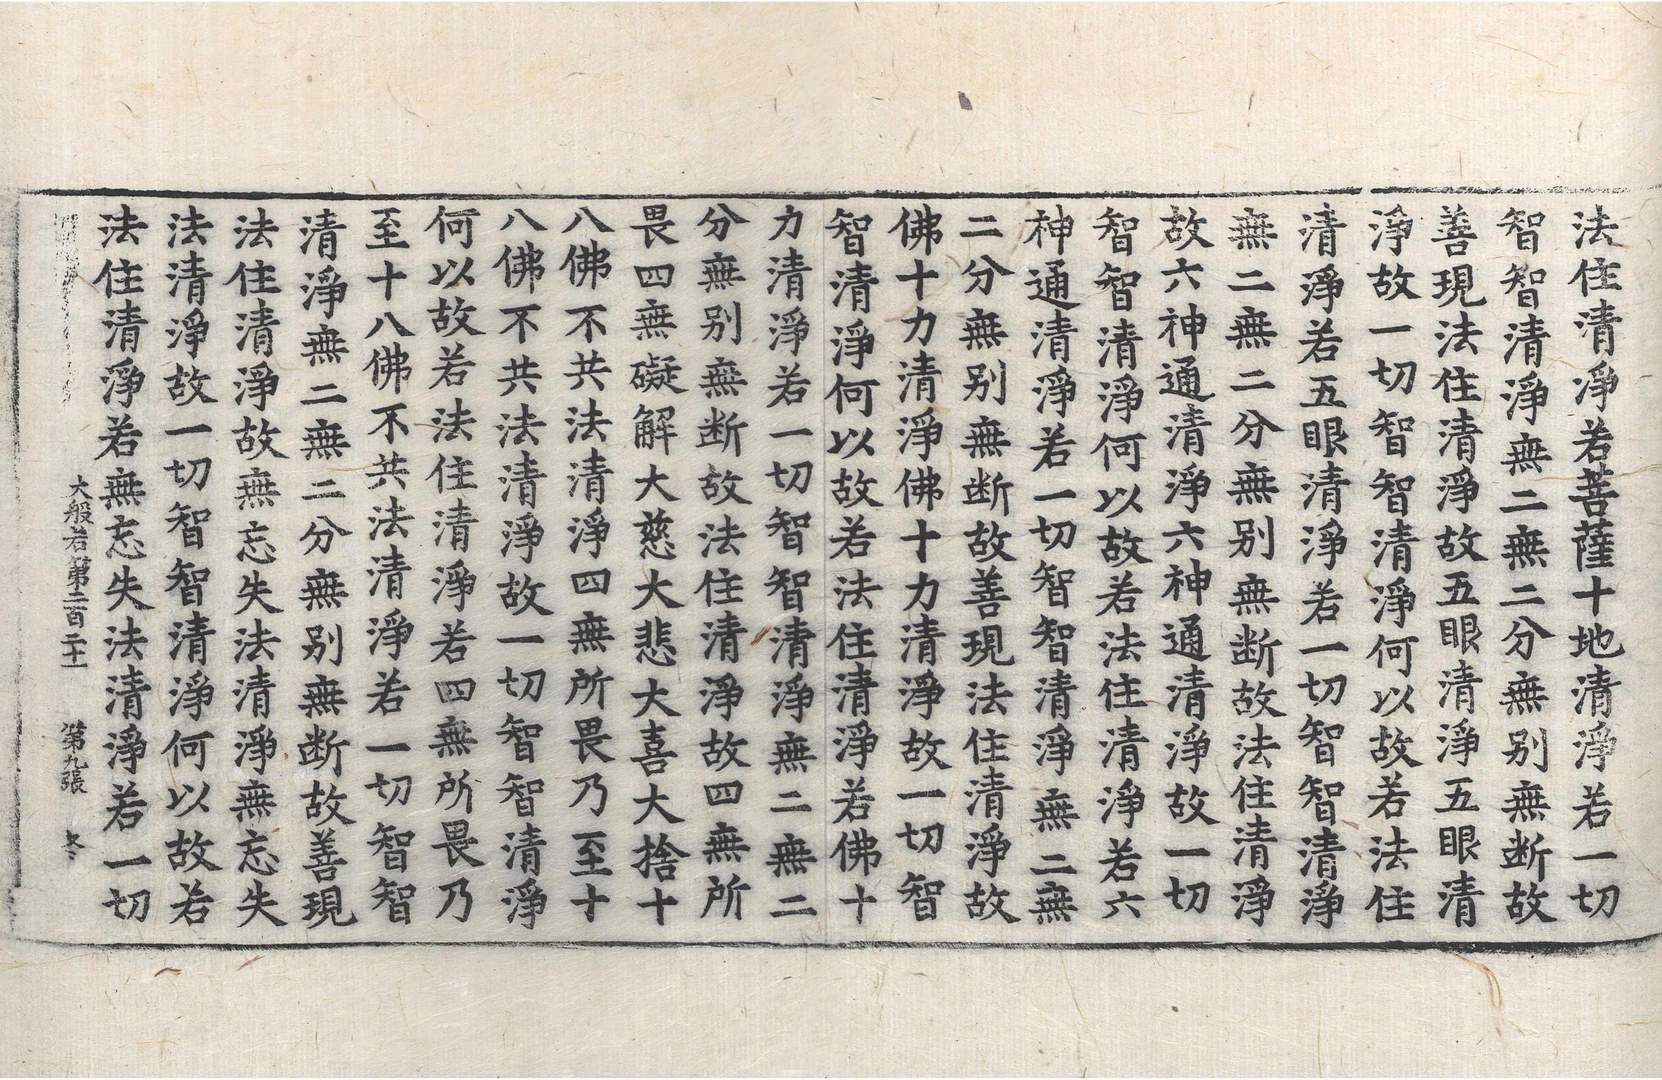 法住清淨若菩薩十地清淨若一切
智智清淨無二無二分無別無断故
善現法住清淨故五眼清淨五眼清
淨故一切智智清淨何以故若法住
清淨若五眼清淨若一切智智清淨
無二無二分無別無断故法住清淨
故六神通清淨六神通清淨故一切
智智清淨何以故若法住清淨若六
神通清淨若一切智智清淨無二無
二分無別無断故善現法住清淨故
佛十力清淨佛十力清淨故一切智
智清淨何以故若法住清淨若佛十
力清淨若一切智智清淨無二無二
分無別無断故法住清淨故四無所
畏四無礙解大慈大悲大喜大捨十
八佛不共法清淨四無所畏乃至十
八佛不共法清淨故一切智智清淨
何以故若法住清淨若四無所畏乃
至十八佛不共法清淨若一切智智
清淨無二無二分無別無断故善現
法住清淨故無忘失法清淨無忘失
法清淨故一切智智清淨何以故若
法住清淨若無忘失法清淨若一切
大般若第二百二十一 第九張